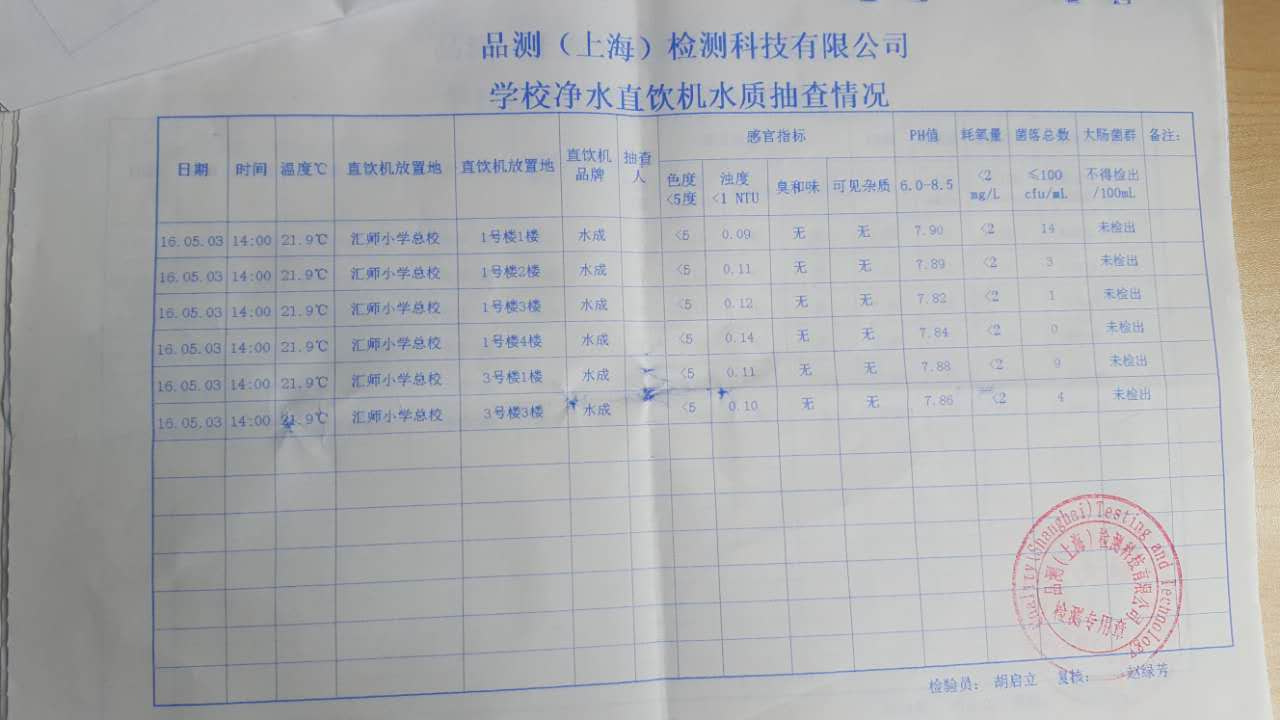 品测（上海）检测科技有限公司
学校净水直饮机水质抽查情况
日期 时间 温度℃ 直饮机放置地 直饮机放置地 直饮机品牌 抽查人 感官指标 PH值 耗氧量 菌落总数 大肠菌群 备注：
色度<5度 浊度<1 NTU 臭和味 可见杂质 6.0-8.5 <2 mg/L ≤100 cfu/mL 不得检出/100mL
16.05.03 14:00 21.9℃ 汇师小学总校 1号楼1楼 水成 <5 0.09 无 无 7.90 <2 14 未检出
16.05.03 14:00 21.9℃ 汇师小学总校 1号楼2楼 水成 <5 0.11 无 无 7.89 <2 3 未检出
16.05.03 14:00 21.9℃ 汇师小学总校 1号楼3楼 水成 <5 0.12 无 无 7.82 <2 1 未检出
16.05.03 14:00 21.9℃ 汇师小学总校 1号楼4楼 水成 <5 0.14 无 无 7.84 <2 0 未检出
16.05.03 14:00 21.9℃ 汇师小学总校 3号楼1楼 水成 <5 0.11 无 无 7.88 <2 9 未检出
16.05.03 14:00 21.9℃ 汇师小学总校 3号楼3楼 水成 <5 0.10 无 无 7.86 <2 4 未检出
Quality(Shanghai)Testing and Technology
品测（上海）检测科技有限公司
检测专用章
检验员： 胡启立 复核： 赵绿芳